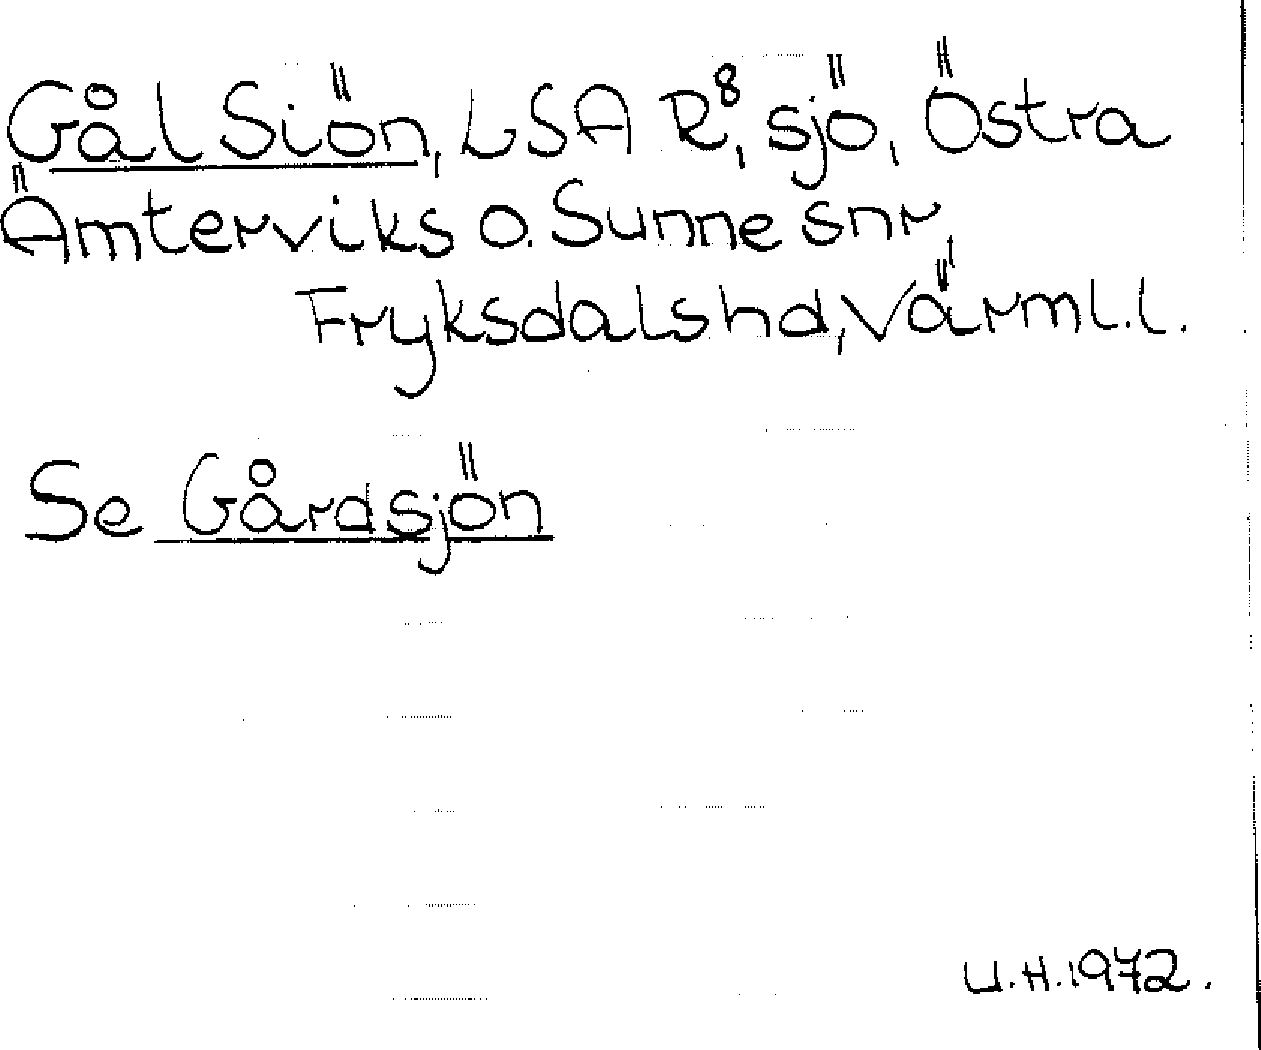 Gål Siön, LSA R⁸, sjö, Östra
Ämterviks o. Sunne snr,
Fryksdalshd, Värml.l.
Se Gårdsjön
U.H.1972.